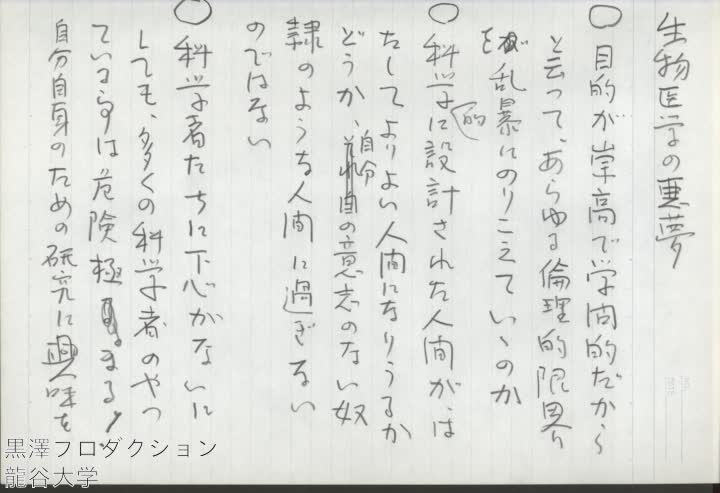 生物医学の悪夢
○ 目的が崇高で学問的だから
と云って、あらゆる倫理的限界
を乱暴にのりこえていゝのか
○ 科学的に設計された人間が、は
たしてよりよい人間になりうるか
どうか、自分の意志のない奴
隷のような人間に過ぎない
のではない
○ 科学者たちに下心がないに
しても、多くの科学者のやっ
ている事は危険極まる!
自分自身のための研究に興味を
黒澤プロダクション
龍谷大学